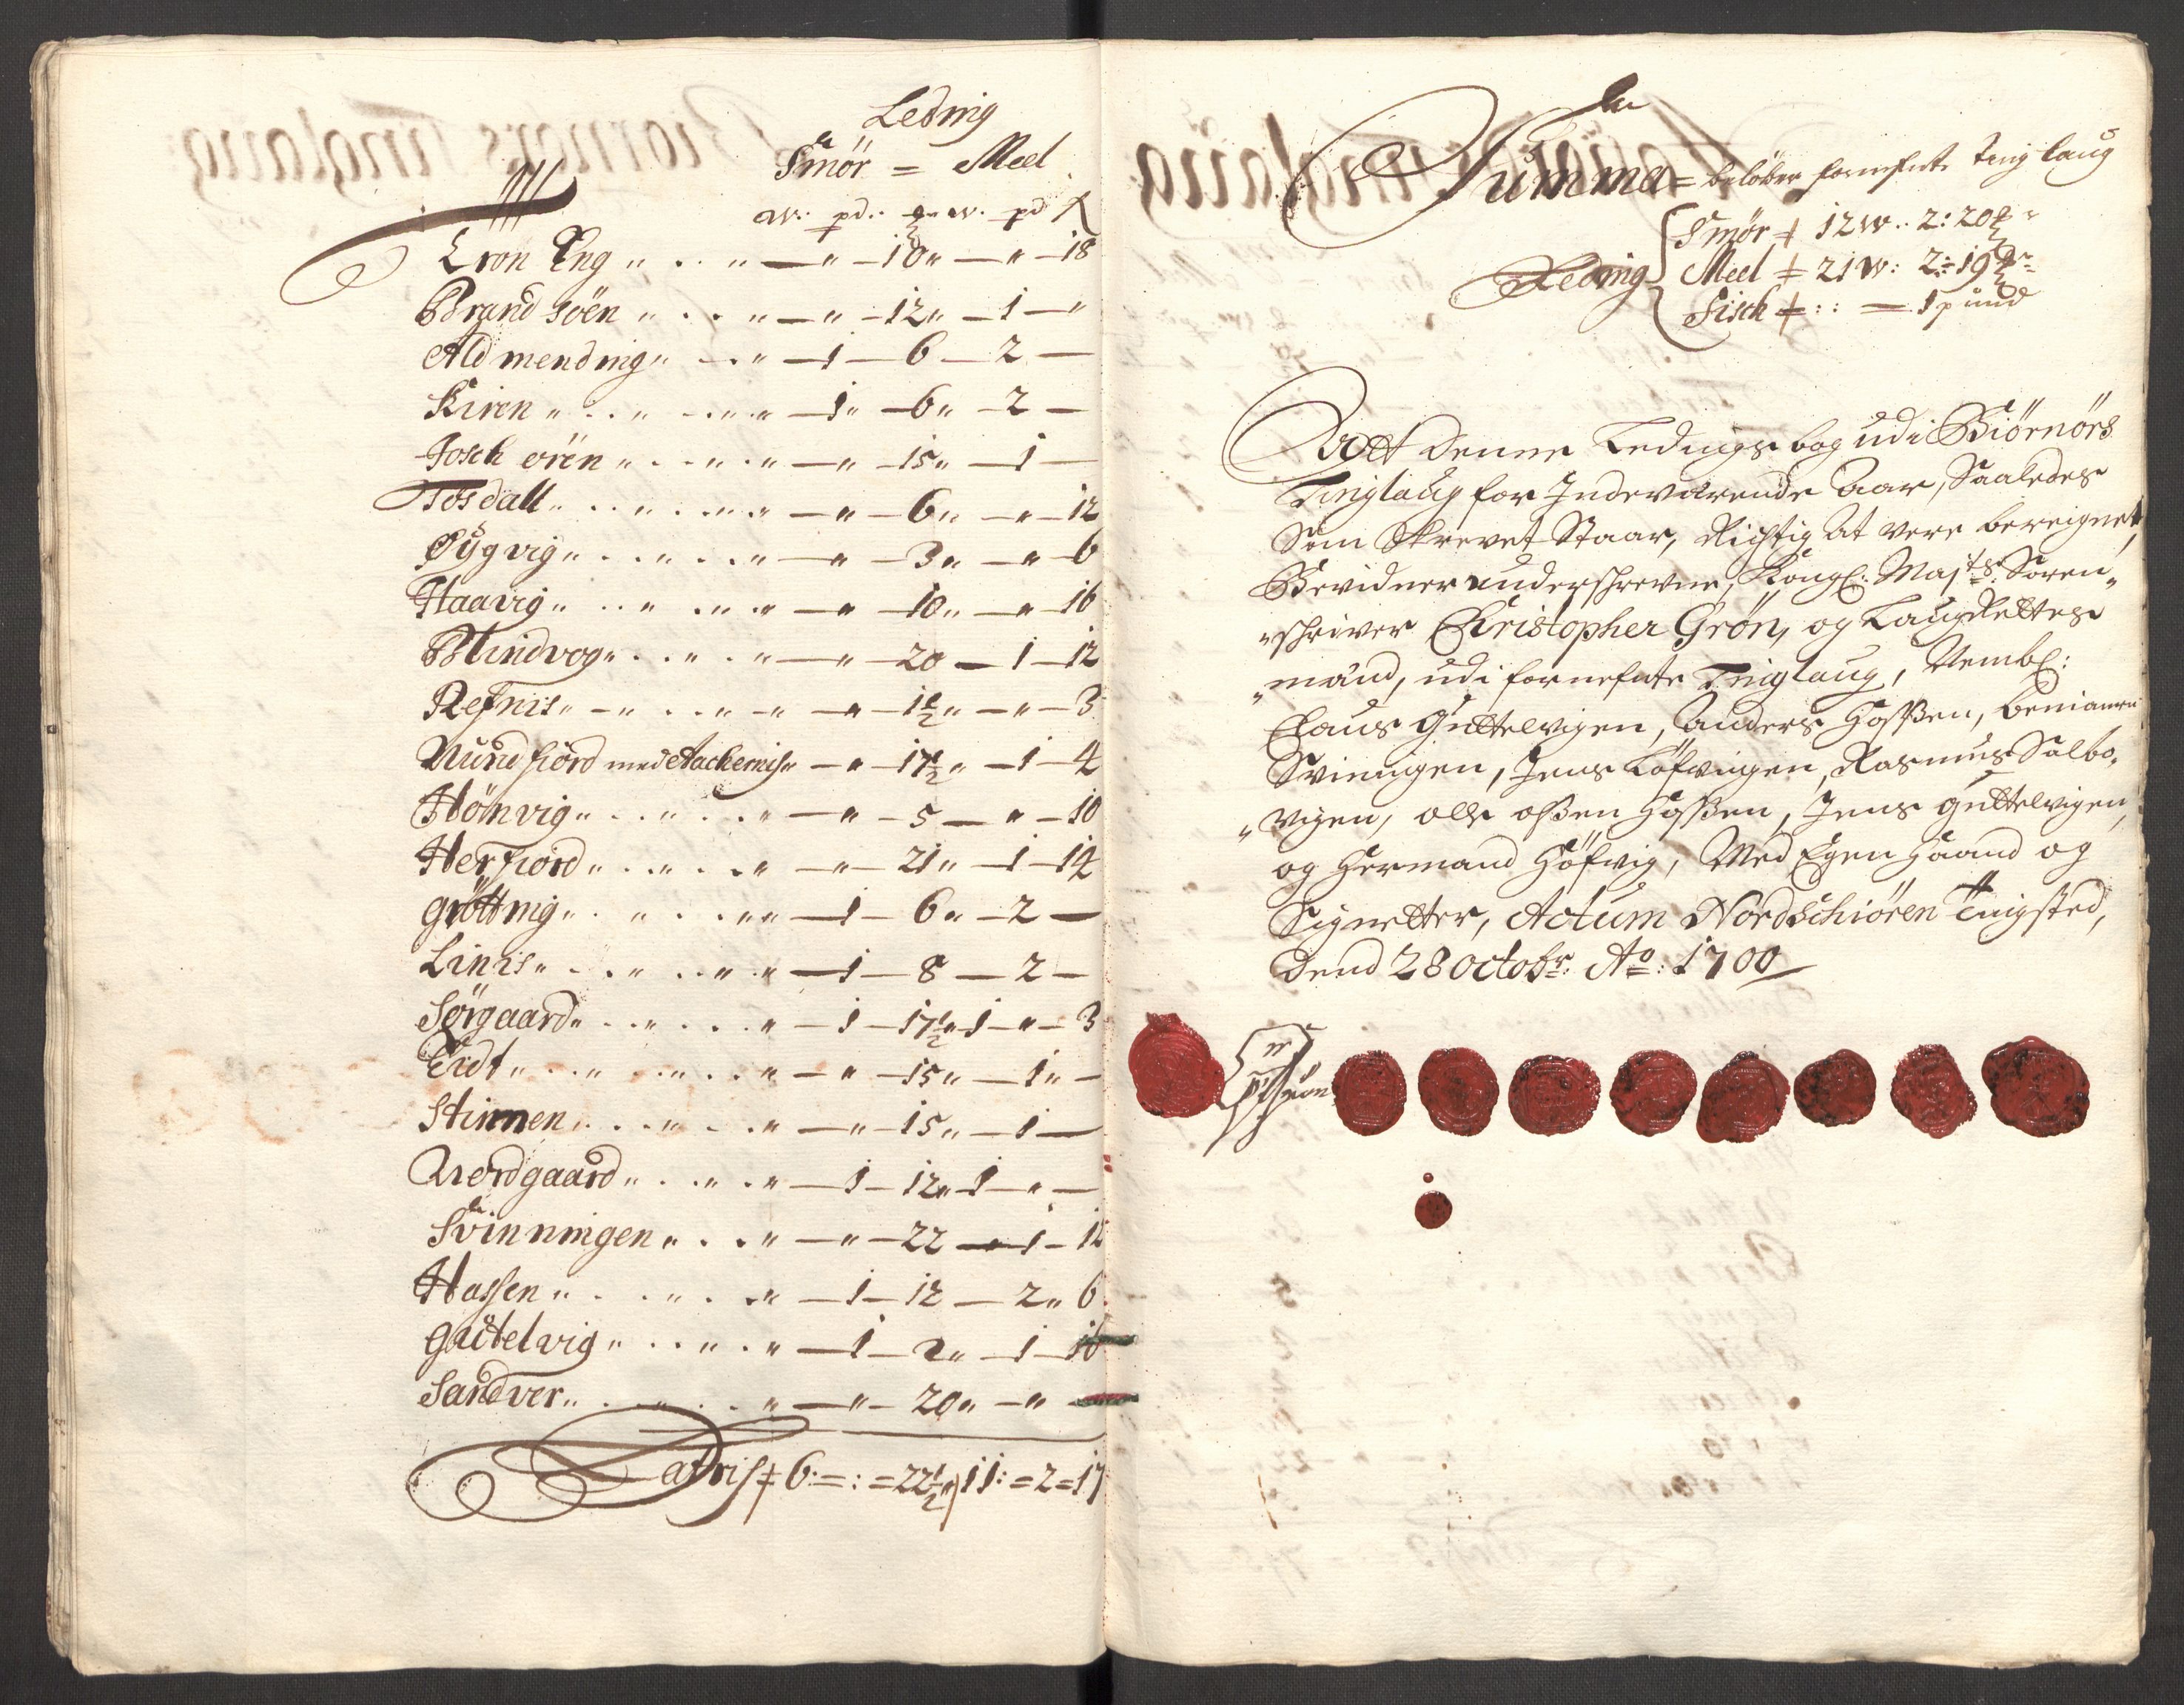 Leding
Smör = Meel
w: pd: w. pd
Eng " . . " — " — 10 " — " — 18
Brandsöen " . . " — " — 12 " — 1 — "
Aldmending " . . " — 1 — 6 — 2 —
Kiren " . . " . . " " — 1 " — 6 " — 2 —
Josch ören " . . " . " — " — 15 " — 1 —
Tosdall " . . " . . " — " — 6 " — " — 12
Öÿgvig " . . " . . " — " — 3 " — " — 6
Haavig " . . " . . " — " — 10 " — " — 16
Blindvog " . . " . " — " — 20 — 1 — 12
Refnis " — " . . " — " — " — 1½ " — " — 3
Nundfiord med Aachernis " — " — 17½ " — 1 — 4
Hönvig " . . " . . " — " — 5 — " — 10
Herfiord " . . " . . " — " — 21 " — 1 — 14
Gröttnig " . " . . " " — 1 — 6 " — 2 —
Linis " . . " . . " " — 1 — 8 — 2 —
Sörgaard " . . " . . " — 1 — 17½ " 1 — " — 3
Eidt " . . " . . " — " — 15 " — 1 " —
Stinnen " . . " . . " — " — 15 " — 1 —
Nordgaard " . . " . " — 1 — 12 " 1 — " —
Svinningen " . . " — " — 22 — 1 — 12
Hassen " . . " . . " — 1 — 12 — 2 " 6
Gutelvig " . . " . " — 1 — 2 " — 1 — 16
Sandver " . . " . . " — " — 20 " — "
Latris ‡ 6 : = : = 22½ " 11 : = 2 = 17
Summa = belöber fornefnte Ting laug
Smör ‡ 12 w : 2 : 20
Leding Meel ‡ 21 w : 2 : 19
Fisch ‡ : : = 1 pund
Att denne Ledings bog udi Biörnörs
Tinglaug for Indeværende Aar, Saaledes
Som Skrevet Staar, Rigtig at vere bereignet,
Bevidner underschrevne, Kongl: Maj:ts Soren"
"schriver Christopher Grön, og Laug Rettes
"mænd, udi fornefnte Tinglaug, Nembl:
Claus Guttelvigen, Anders Hassen, Beniamin
Svinngen, Jens Löfvigen, Rasmus Salbo"
"vigen, Olle Hassen, Jens Guttelvigen,
og Hermand Höfvig, Med Egen Haand og
Signetter, Actum Nordschiören Tingsted,
Dend 28 Octobr: Ao: 1700